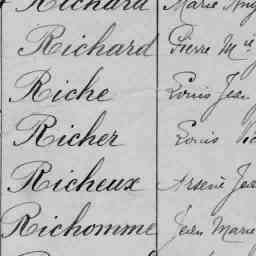 Richard Marie
Richard Pierre Mie
Riche Louis Jean
Richer Louis
Richeux Arsène
Richomme Jean Marie